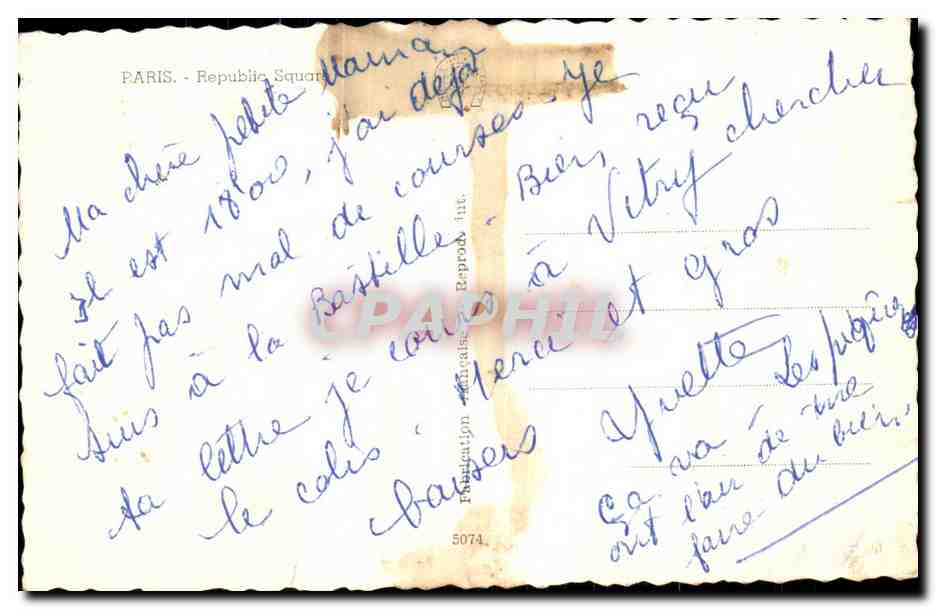 PARIS. - Republic Squar
Ma chère petite Maman
Il est 18h00, j'ai déjà
fait pas mal de courses. Je
suis à la Bastille. Bien reçu
ta lettre je cours à Vitry chercher
le colis. Merci et gros
baisers Yvette
Ça va. Les piqûres
ont l'air de me
faire du bien.
Fabrication Française - Reprod. int.
5074
CPAPHIL